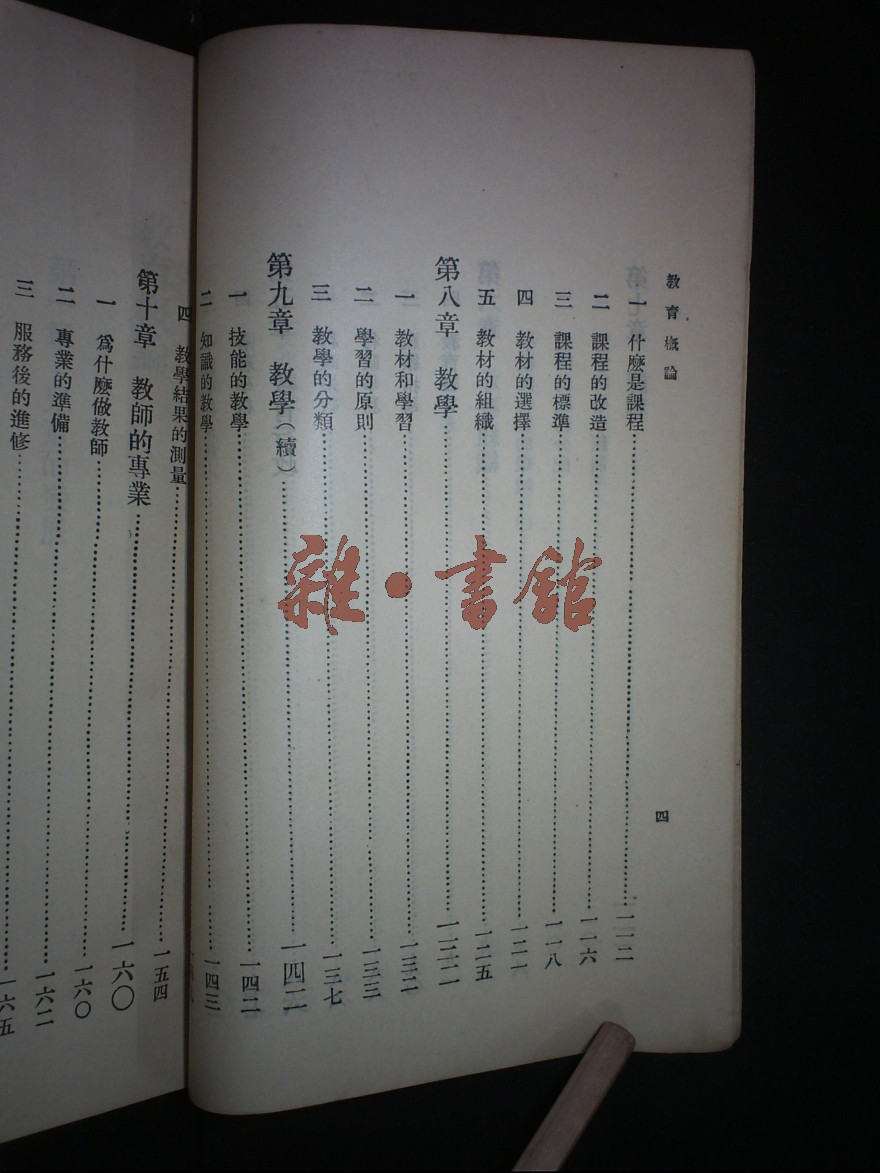 教育概論
一 什麽是課程 一一二
二 課程的改造 一一六
三 課程的標準 一一八
四 教材的選擇 一二一
五 教材的組織 一二五
第八章 教學 一三二
一 教材和學習 一三二
二 學習的原則 一三三
三 教學的分類 一三七
第九章 教學(續) 一四二
一 技能的教學 一四二
二 知識的教學 一四三
四
四 教學結果的測量 一五四
第十章 教師的專業 一六〇
一 爲什麽做教師 一六〇
二 專業的準備 一六二
三 服務後的進修 一六五
雜·書館